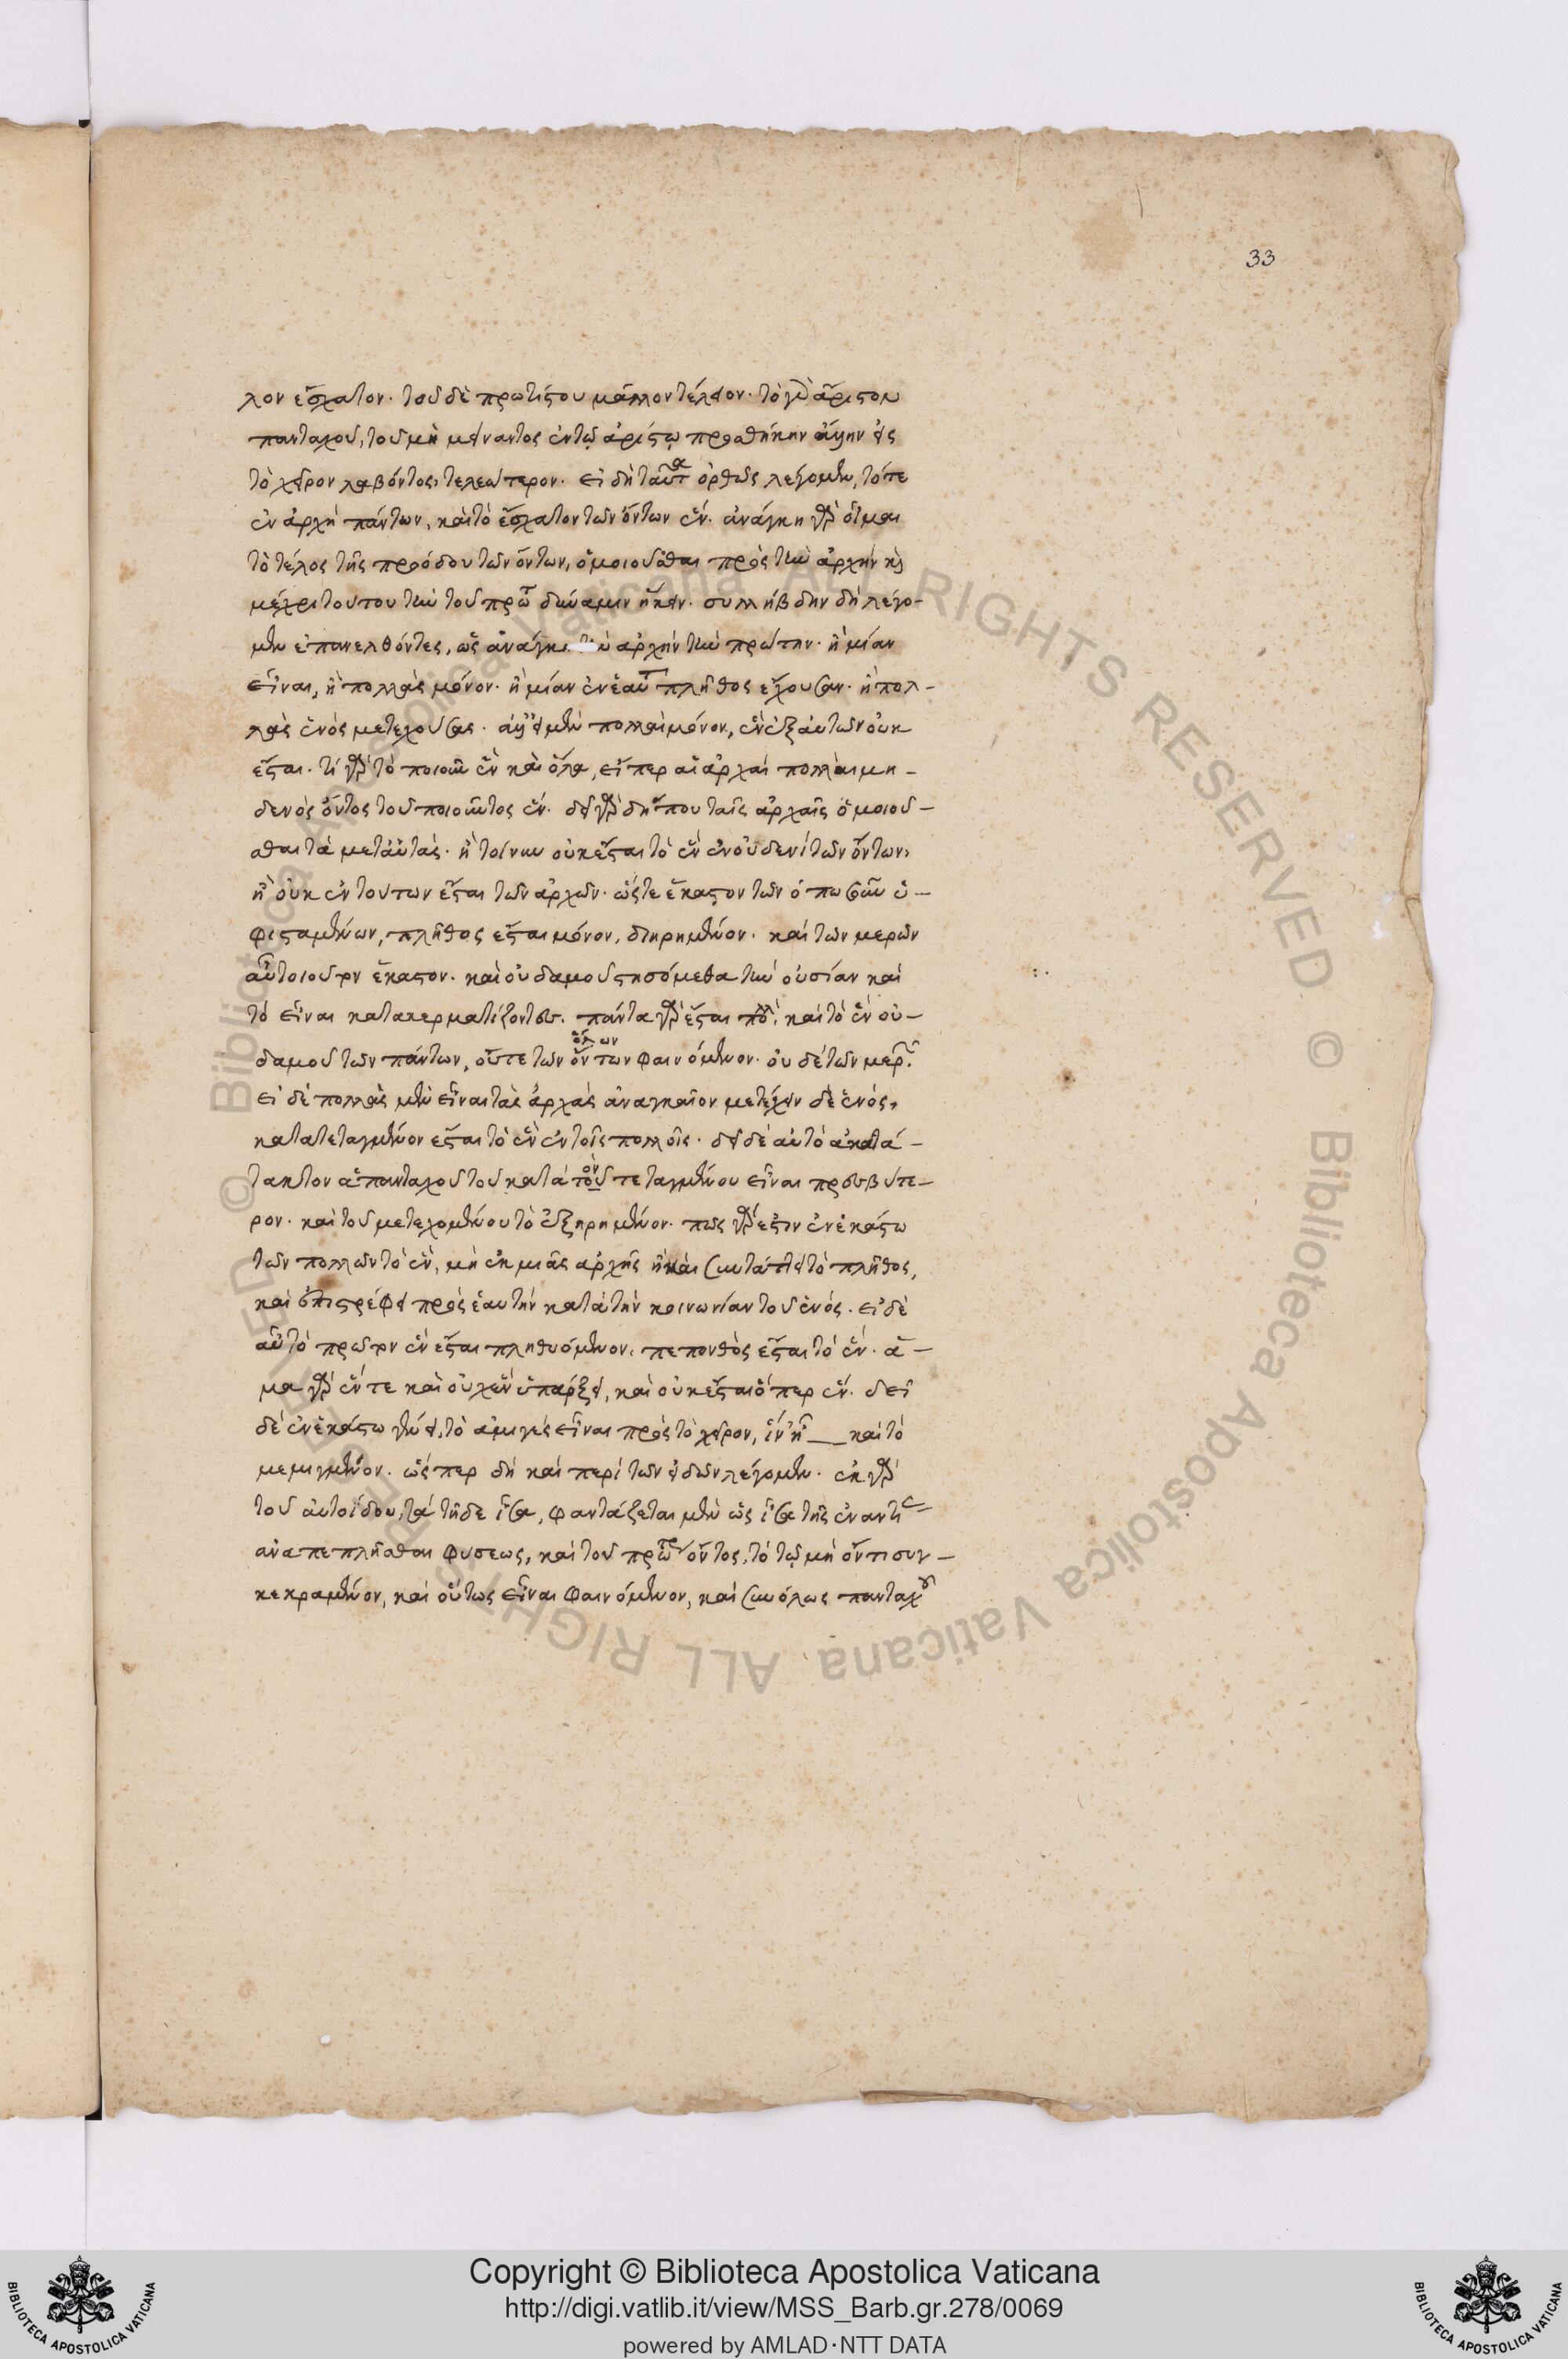 33
λον ἔσχατον. τοῦ δὲ πρωτίστου μᾶλλον τέλειον. τὸ γὰρ ἄριστον
πανταχοῦ, τοῦ μὴ μείναντος ἐν τῷ ἀρίστῳ προσθήκην εἰς
τὸ χεῖρον λαβόντος, τελεώτερον. εἰ δὴ ταῦτα ὀρθῶς λέγομεν, τότε
ἓν ἀρχὴ πάντων, καὶ τὸ ἔσχατον τῶν ὄντων ἕν. ἀνάγκη γὰρ οἶμαι
τὸ τέλος τῆς προόδου τῶν ὄντων, ὁμοιοῦσθαι πρὸς τὴν ἀρχὴν καὶ
μέχρι τούτου τὴν τοῦ πρώτ δύναμιν ἥκειν. συλλήβδην δὴ λέγο-
μεν ἐπανελθόντες, ὡς ἀνάγκη τὴν ἀρχὴν τὴν πρώτην. ἢ μίαν
εἶναι, ἢ πολλὰς μόνον. ἢ μίαν ἐν ἑαυτ πλῆθος ἔχουσαν. ἢ πολ-
λὰς ἑνὸς μετεχούσας. ἀλλ' εἰ μὲν πολλαὶ μόνον, ἓν ἐξ αὐτῶν οὐκ
ἔσται. τί γὰρ τὸ ποιοῦν ἓν καὶ ὅλα, εἴπερ αἱ ἀρχαὶ πολλαὶ μη-
δενὸς ὄντος τοῦ ποιοῦντος ἕν. δεῖ γὰρ δήπου ταῖς ἀρχαῖς ὁμοιοῦ-
σθαι τὰ μετ' αὐτάς. ἢ τοίνυν οὐκ ἔσται τὸ ἓν ἐν οὐδενὶ τῶν ὄντων,
ἢ οὐκ ἐν τούτων ἔσται τῶν ἀρχῶν. ὥστε ἕκαστον τῶν ὁπωσοῦν ὑ-
φισταμένων, πλῆθος ἔσται μόνον, διῃρημένον. καὶ τῶν μερῶν
αὖ τοιοῦτον ἕκαστον. καὶ οὐδαμοῦ στησόμεθα τὴν οὐσίαν καὶ
τὸ εἶναι κατακερματίζοντες. πάντα γὰρ ἔσται πολ. καὶ τὸ ἓν οὐ-
δαμοῦ τῶν πάντων, οὔτε τῶν ὄντων ὅλων φαινόμενον. οὐδὲ τῶν μερ.
εἰ δὲ πολλὰς μὲν εἶναι τὰς ἀρχὰς ἀναγκαῖον μετέχειν δὲ ἑνός,
κατατεταγμένον ἔσται τὸ ἓν ἐν τοῖς πολλοῖς. δεῖ δὲ αὐτὸ ἀκατά-
τακτον ἁπανταχοῦ τοῦ κατατεταγμένου εἶναι πρεσβύτε-
ρον. καὶ τοῦ μετεχομένου τὸ ἐξῃρημένον. πῶς γάρ ἐστιν ἐν ἑκάστῳ
τῶν πολλῶν τὸ ἕν, μὴ ἐκ μιᾶς ἀρχῆς ἣ καὶ συντάττει τὸ πλῆθος,
καὶ ἐπιστρέφει πρὸς ἑαυτὴν κατὰ τὴν κοινωνίαν τοῦ ἑνός. εἰ δὲ
αὖ τὸ πρῶτον ἓν ἔσται πληθυόμενον, πεπονθὸς ἔσται τὸ ἕν. ἅ-
μα γὰρ ἕν τε καὶ οὐχ ἓν ὑπάρξει, καὶ οὐκ ἔσται ὅπερ ἕν. δεῖ
δὲ ἐν ἑκάστῳ γένει, τὸ ἀμιγὲς εἶναι πρὸς τὸ χεῖρον, ἵν' ᾖ — καὶ τὸ
μεμιγμένον. ὥσπερ δὴ καὶ περὶ τῶν εἰδῶν λέγομεν. ἐκ γὰρ
τοῦ αὐτοΐσου, τὰ τῇδε ἴσα, φαντάζεται μὲν ὡς ἴσα τῆς ἐναντι
ἀναπεπλῆσθαι φύσεως, καὶ τοῦ πρώτως ὄντος, τὸ τῷ μὴ ὄντι συγ-
κεκραμένον, καὶ οὕτως εἶναι φαινόμενον, καὶ συνόλως πανταχοῦ
Copyright © Biblioteca Apostolica Vaticana
http://digi.vatlib.it/view/MSS_Barb.gr.278/0069
powered by AMLAD·NTT DATA